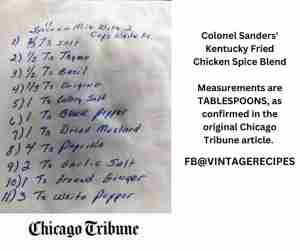 11 Spices – Mix With 2
Cups White Fl.
1) 2/3 Ts Salt
2) 1/2 Ts Thyme
3) 1/2 Ts Basil
4) 1/3 Ts Origino
5) 1 Ts Celery Salt
6) 1 Ts Black Pepper
7) 1 Ts Dried Mustard
8) 4 Ts Paprika
9) 2 Ts Garlic Salt
10) 1 Ts Ground Ginger
11) 3 Ts White Pepper
Chicago Tribune
Colonel Sanders'
Kentucky Fried
Chicken Spice Blend
Measurements are
TABLESPOONS, as
confirmed in the
original Chicago
Tribune article.
FB@VINTAGERECIPES